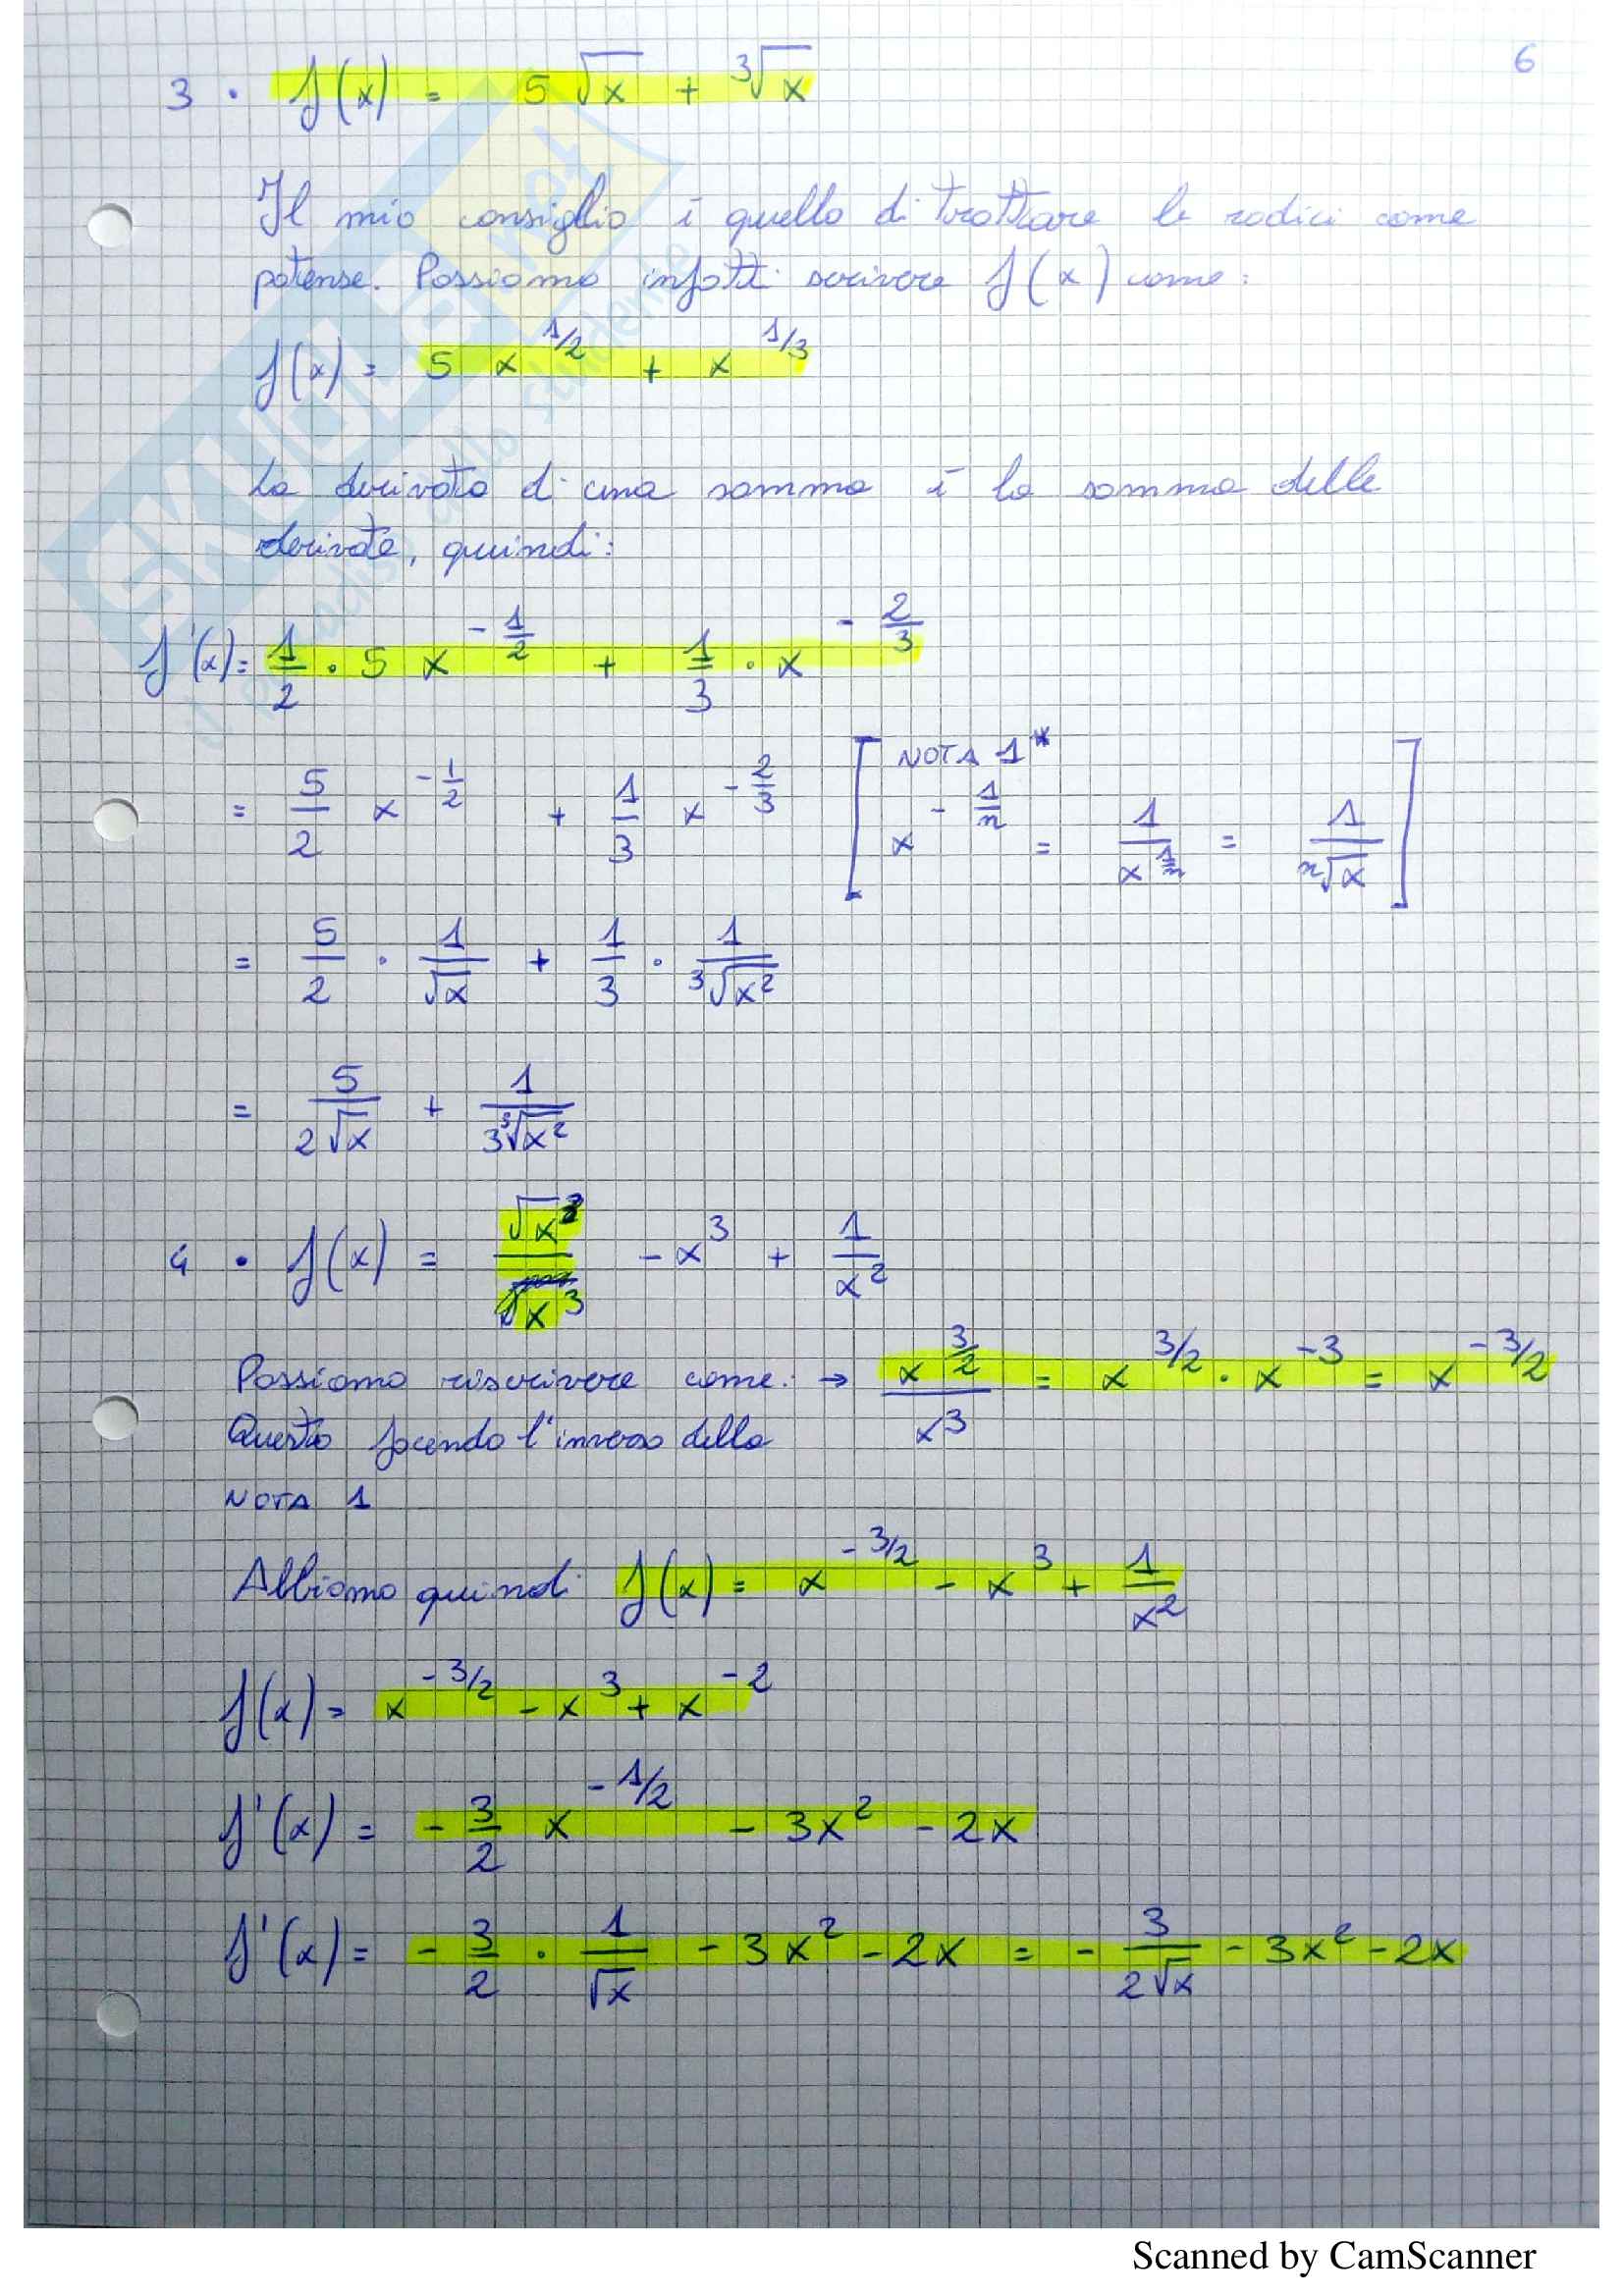 6
3 · f(x) = 5 √x + ³√x
Il mio consiglio è quello di trattare le radici come
potenze. Possiamo infatti scrivere f(x) come:
f(x) = 5 x^1/2 + x^1/3
La derivata di una somma è la somma delle
derivate, quindi:
f'(x) = 1/2 · 5 x^-1/2 + 1/3 · x^-2/3
= 5/2 x^-1/2 + 1/3 x^-2/3 [NOTA 1*
x^-1/n = 1/x^1/n = 1/ⁿ√x]
= 5/2 · 1/√x + 1/3 · 1/³√x²
= 5/2√x + 1/3³√x²
4 · f(x) = √x³/x³ - x³ + 1/x²
Possiamo riscrivere come: → x^3/2/x³ = x^3/2 · x^-3 = x^-3/2
Questo facendo l'inverso della
NOTA 1
Abbiamo quindi f(x) = x^-3/2 - x³ + 1/x²
f(x) = x^-3/2 - x³ + x^-2
f'(x) = -3/2 x^-1/2 - 3x² - 2x
f'(x) = -3/2 · 1/√x - 3x² - 2x = -3/2√x - 3x² - 2x
Scanned by CamScanner